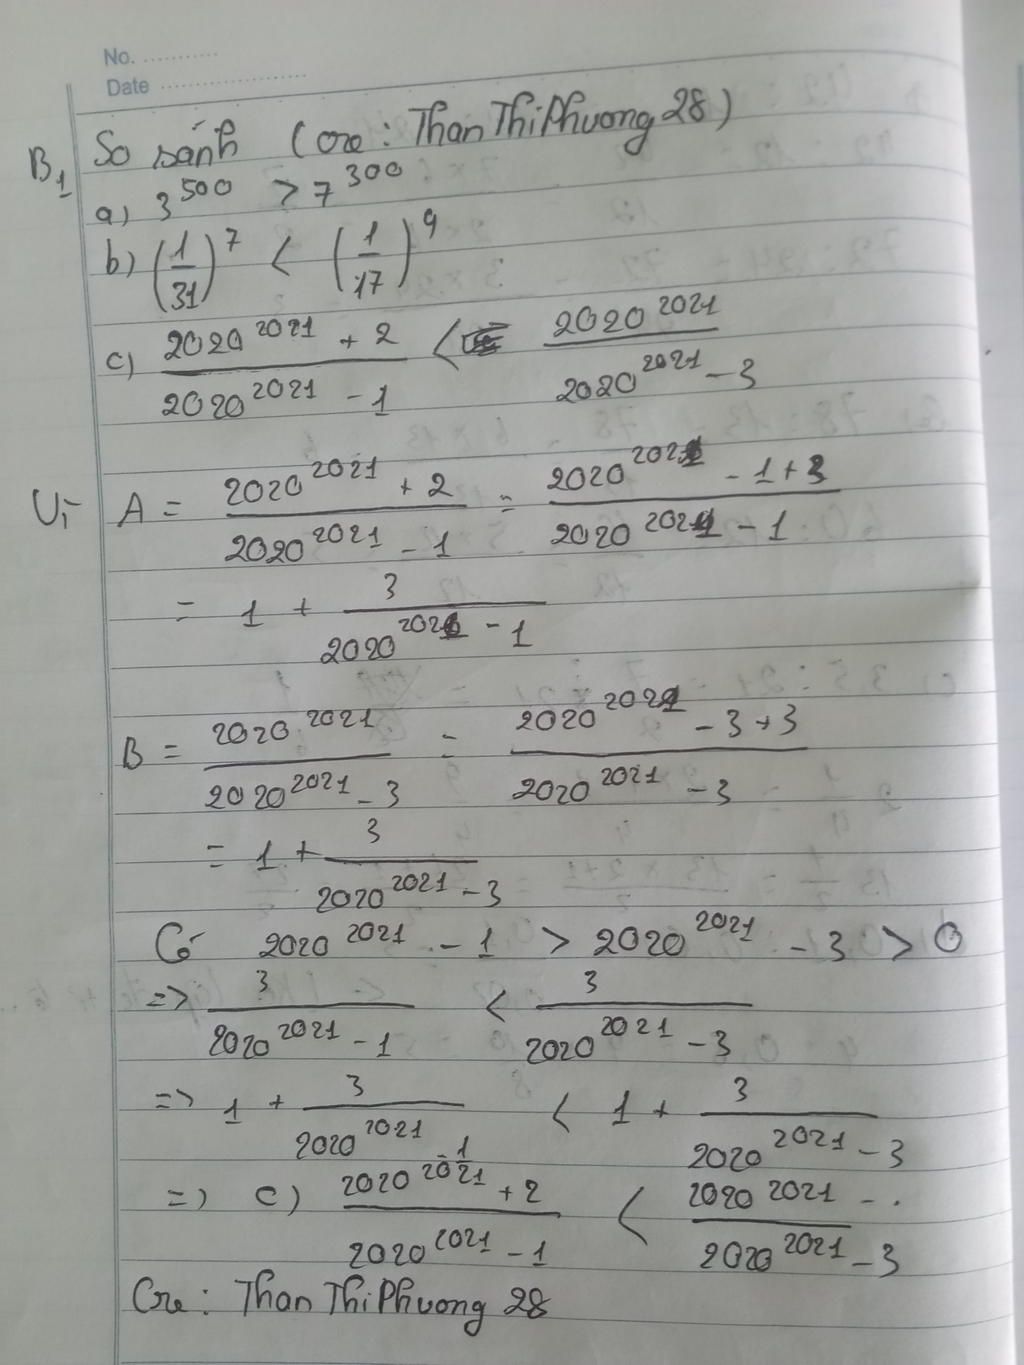 No. ...........
Date ......................
B1 So sánh (cre: ThanThiPhuong 28)
a) 3^500 > 7^300
b) (1/31)^7 < (1/17)^9
c) (2020^2021 + 2)/(2020^2021 - 1) < 2020^2021/(2020^2021 - 3)
Vì A = (2020^2021 + 2)/(2020^2021 - 1) = (2020^2021 - 1 + 3)/(2020^2021 - 1)
= 1 + 3/(2020^2021 - 1)
B = 2020^2021/(2020^2021 - 3) = (2020^2021 - 3 + 3)/(2020^2021 - 3)
= 1 + 3/(2020^2021 - 3)
Có 2020^2021 - 1 > 2020^2021 - 3 > 0
=> 3/(2020^2021 - 1) < 3/(2020^2021 - 3)
=> 1 + 3/(2020^2021 - 1) < 1 + 3/(2020^2021 - 3)
=> c) (2020^2021 + 2)/(2020^2021 - 1) < 2020^2021/(2020^2021 - 3)
Cre: ThanThiPhuong 28